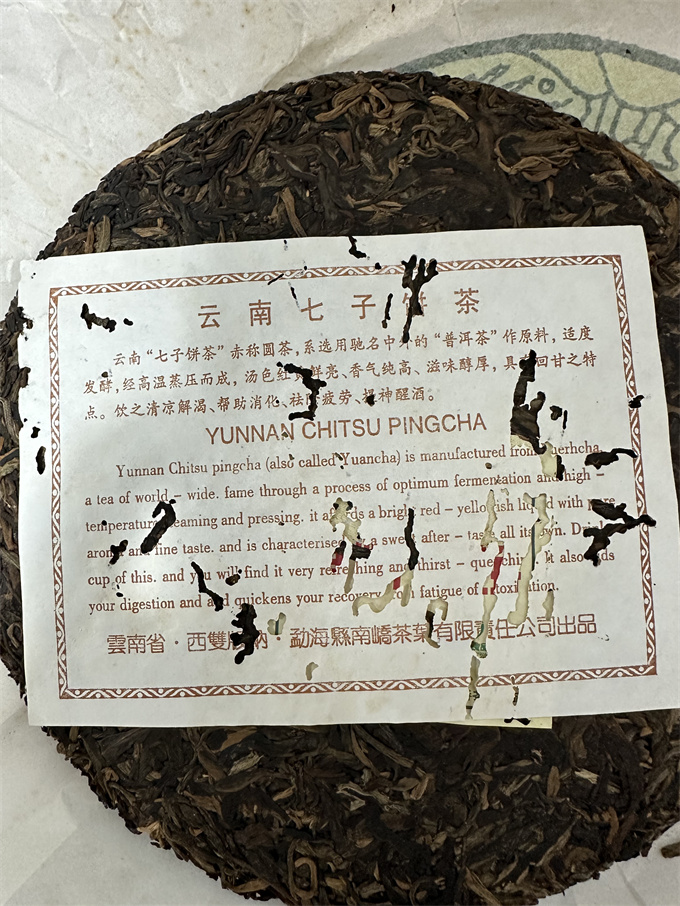 云南七子饼茶
云南“七子饼茶”亦称圆茶,系选用驰名中外的“普洱茶”作原料,适度
发酵,经高温蒸压而成,汤色红黄鲜亮、香气纯高、滋味醇厚,具有回甘之特
点。饮之清凉解渴、帮助消化、祛除疲劳、提神醒酒。
YUNNAN CHITSU PINGCHA
Yunnan Chitsu pingcha (also called Yuancha) is manufactured from Puerhcha,
a tea of world – wide. fame through a process of optimum fermentation and high –
temperature steaming and pressing. it affords a bright red – yellowish liquid with pure
aroma and fine taste. and is characterised by a sweet after – taste all its own. Drink a
cup of this. and you will find it very refreshing and thirst – quenching. It also aids
your digestion and and quickens your recovery from fatigue of intoxication.
雲南省·西雙版納·勐海縣南嶠茶葉有限責任公司出品